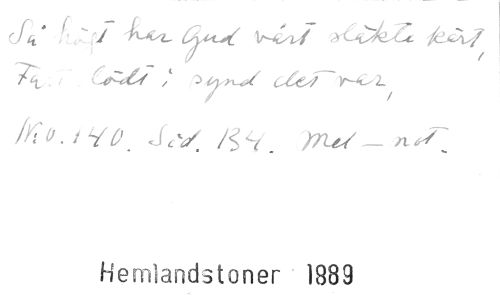 Så högt har Gud vårt släkte kärt,
Fast dödt i synd det var,
No. 140. Sid. 134. Mel-not.
Hemlandstoner 1889